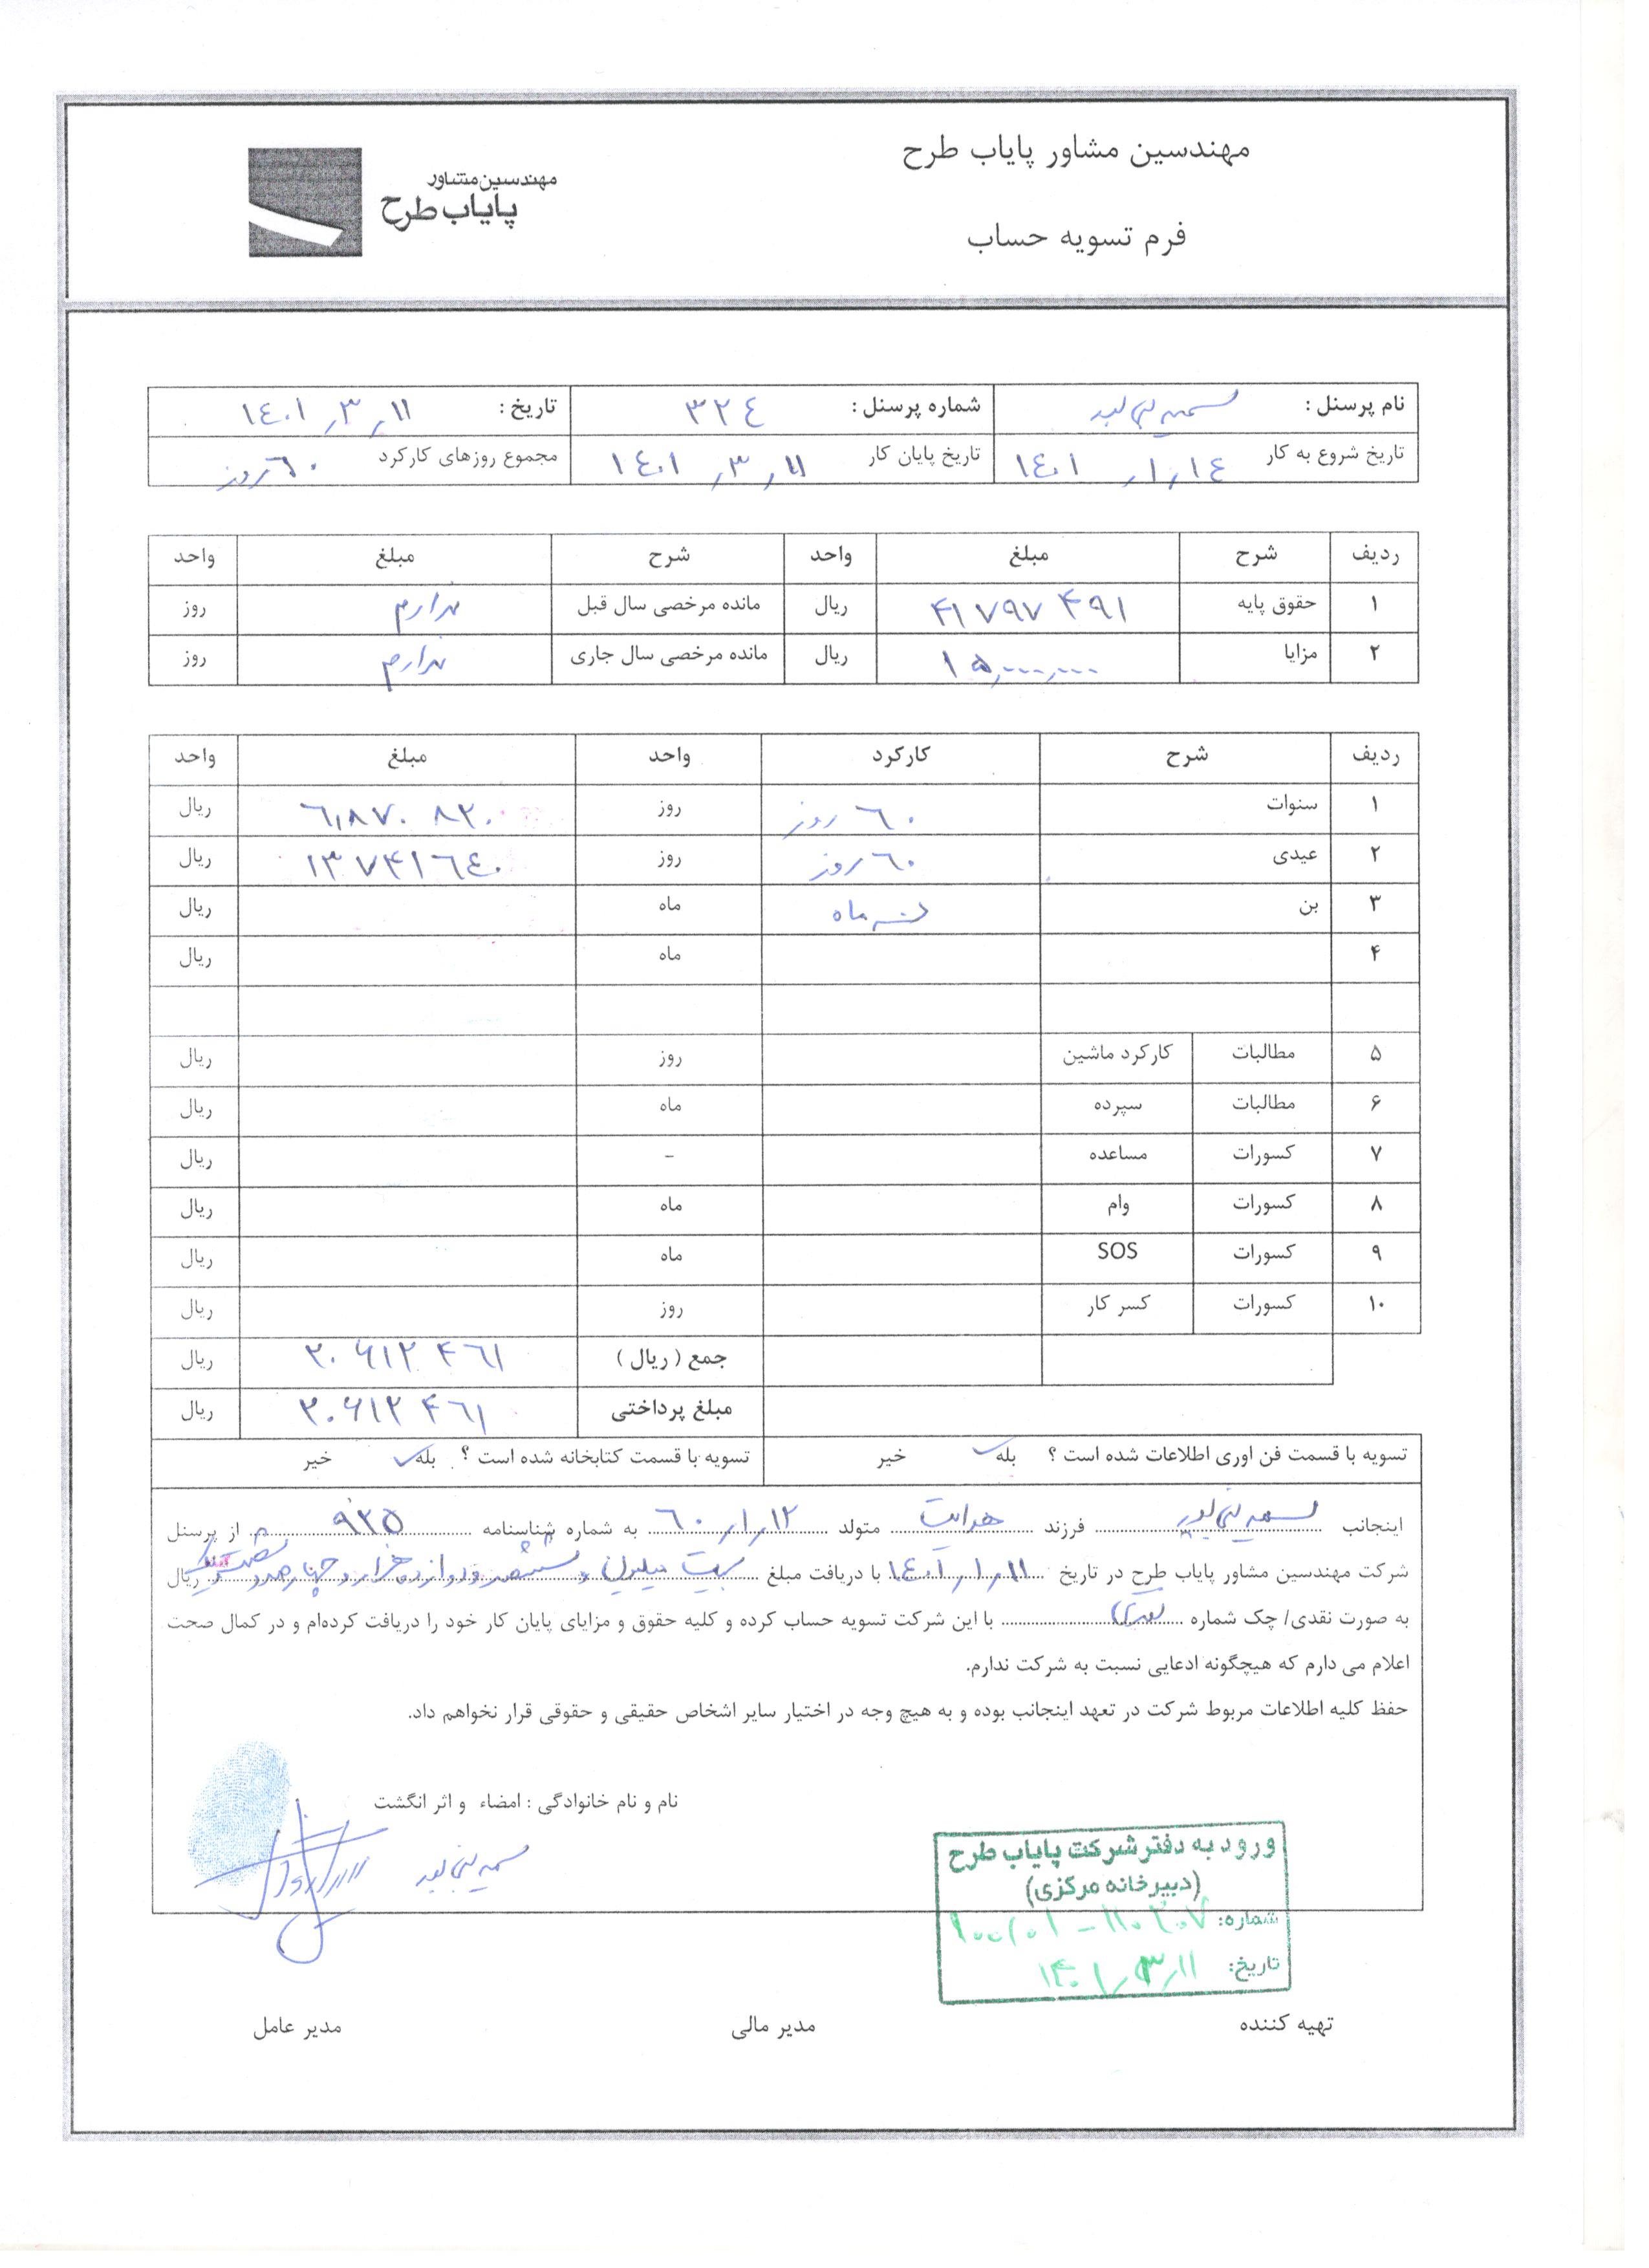 مهندسین مشاور پایاب طرح
مهندسین مشاور
پایاب طرح
فرم تسویه حساب
نام پرسنل : سمیه نبی پور شماره پرسنل : ۳۲٤ تاریخ : ۱٤۰۱٫۳٫۱۱
تاریخ شروع به کار ۱٤۰۱٫۱٫۱٤ تاریخ پایان کار ۱٤۰۱٫۳٫۱۱ مجموع روزهای کارکرد ٦۰ روز
ردیف شرح مبلغ واحد شرح مبلغ واحد
۱ حقوق پایه ۴۱۷۹۷۴۹۱ ریال مانده مرخصی سال قبل ندارم روز
۲ مزایا ۱۵,۰۰۰,۰۰۰ ریال مانده مرخصی سال جاری ندارم روز
ردیف شرح کارکرد واحد مبلغ واحد
۱ سنوات ٦۰ روز روز ٦,۸۷۰۸۲۰ ریال
۲ عیدی ٦۰ روز روز ۱۳۷۴۱٦٤۰ ریال
۳ بن ماه ماه ریال
۴ ماه ریال
۵ مطالبات کارکرد ماشین روز ریال
۶ مطالبات سپرده ماه ریال
۷ کسورات مساعده - ریال
۸ کسورات وام ماه ریال
۹ کسورات SOS ماه ریال
۱۰ کسورات کسر کار روز ریال
جمع ( ریال ) ۲۰۶۱۲۴٦۱ ریال
مبلغ پرداختی ۲۰۶۱۲۴٦۱ ریال
تسویه با قسمت فن اوری اطلاعات شده است ؟ بله خیر تسویه با قسمت کتابخانه شده است ؟ بله خیر
اینجانب سمیه نبی پور فرزند هدایت متولد ٦۰٫۱٫۱۲ به شماره شناسنامه ۹۲۵ از پرسنل
شرکت مهندسین مشاور پایاب طرح در تاریخ ۱٤۰۱٫۱٫۱۱ با دریافت مبلغ بیست میلیون و ششصد و دوازده هزار و چهارصد و شصت و یک ریال
به صورت نقدی/ چک شماره نقدی با این شرکت تسویه حساب کرده و کلیه حقوق و مزایای پایان کار خود را دریافت کرده‌ام و در کمال صحت
اعلام می دارم که هیچگونه ادعایی نسبت به شرکت ندارم.
حفظ کلیه اطلاعات مربوط شرکت در تعهد اینجانب بوده و به هیچ وجه در اختیار سایر اشخاص حقیقی و حقوقی قرار نخواهم داد.
نام و نام خانوادگی : امضاء و اثر انگشت
سمیه نبی پور
ورود به دفتر شرکت پایاب طرح
(دبیرخانه مرکزی)
شماره:
تاریخ: ۱۴۰۱٫۳٫۱۱
تهیه کننده مدیر مالی مدیر عامل